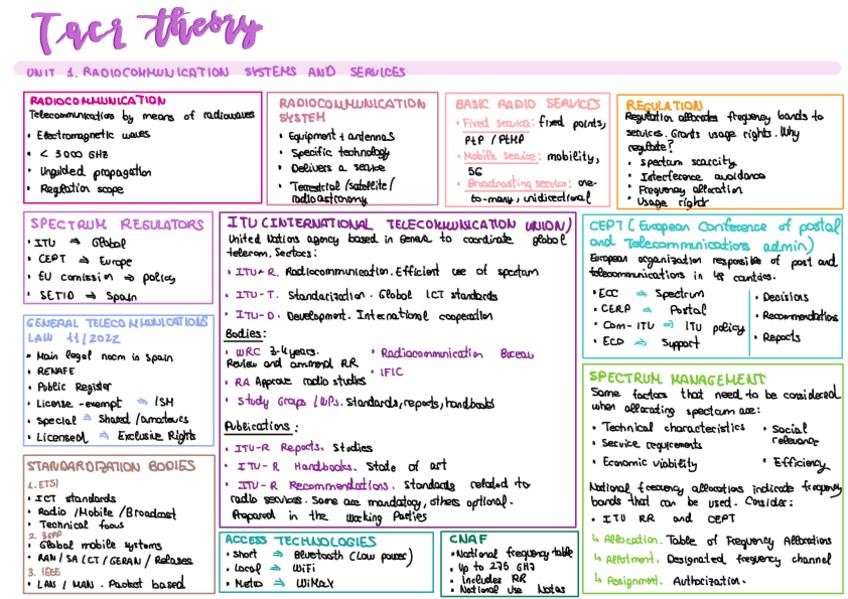 Tacr theory
UNIT 1. RADIOCOMMUNICATION SYSTEMS AND SERVICES
RADIOCOMMUNICATION
Telecommunication by means of radiowaves
• Electromagnetic waves
• < 3000 GHz
• Unguided propagation
• Regulation scope
RADIOCOMMUNICATION
SYSTEM
• Equipment + antennas
• Specific technology
• Delivers a service
• Terrestrial /satellite/
radioastronomy
BASIC RADIO SERVICES
• Fixed service: fixed points,
PtP / PtMP
• Mobile service: mobility,
5G
• Broadcasting service: one-
to-many, unidirectional
REGULATION
Regulation allocates frequency bands to
services. Grants usage rights. Why
regulate?
• Spectum scarcity
• Interference avoidance
• Frequency allocation
• Usage rights
SPECTRUM REGULATORS
• ITU ⇒ Global
• CEPT ⇒ Europe
• EU comission ⇒ policy
• SETID ⇒ Spain
GENERAL TELECOMMUNICATIONS
LAW 11/2022
• Main legal norm in Spain
• RENAFE
• Public Register
• License-exempt ⇒ ISM
• Special ⇒ Shared /amateurs
• Licensed ⇒ Exclusive Rights
STANDARDIZATION BODIES
1. ETSI
• ICT standards
• Radio /Mobile /Broadcast
• Technical focus
2. 3GPP
• Global mobile systems
• RAN/SA/CT/GERAN/Releases
3. IEEE
• LAN / MAN. Packet based
ITU (INTERNATIONAL TELECOMMUNICATION UNION)
United Nations agency based in Geneva to coordinate global
telecom. Sectors:
• ITU-R. Radiocommunication. Efficient use of spectum
• ITU-T. Standarization. Global ICT standards
• ITU-D. Development. International cooperation
Bodies:
• WRC 3-4 years.
Review and ammend RR
• RA Approve radio studies
• Study Groups /WPs. Standards, reports, handbooks
• Radiocommunication Bureau
• IFIC
Publications:
• ITU-R Reports. Studies
• ITU-R Handbooks. State of art
• ITU-R Recommendations. Standards related to
radio services. Some are mandatory, others optional.
Prepared in the Working Parties
ACCESS TECHNOLOGIES
• Short ⇒ Bluetooth (Low power)
• Local ⇒ WiFi
• Metro ⇒ WiMax
CNAF
• National frequency table
• Up to 275 GHz
• Includes RR
• National Use Notas
CEPT (European Conference of postal
and Telecommunications admin)
European organization responsible of post and
telecommunications in 48 countries.
• ECC ⇒ Spectrum
• CERP ⇒ Postal
• Com-ITU ⇒ ITU policy
• ECO ⇒ Support
• Decisions
• Recommendations
• Reports
SPECTRUM MANAGEMENT
Some factors that need to be considered
when allocating spectum are:
• Technical characteristics
• Service requirements
• Economic viability
• Social
relevance
• Efficiency
National frequency allocations indicate frequency
bands that can be used. Consider:
• ITU RR and CEPT
↳ Allocation. Table of Frequency Allocations
↳ Allotment. Designated frequency channel
↳ Assignment. Authorization.